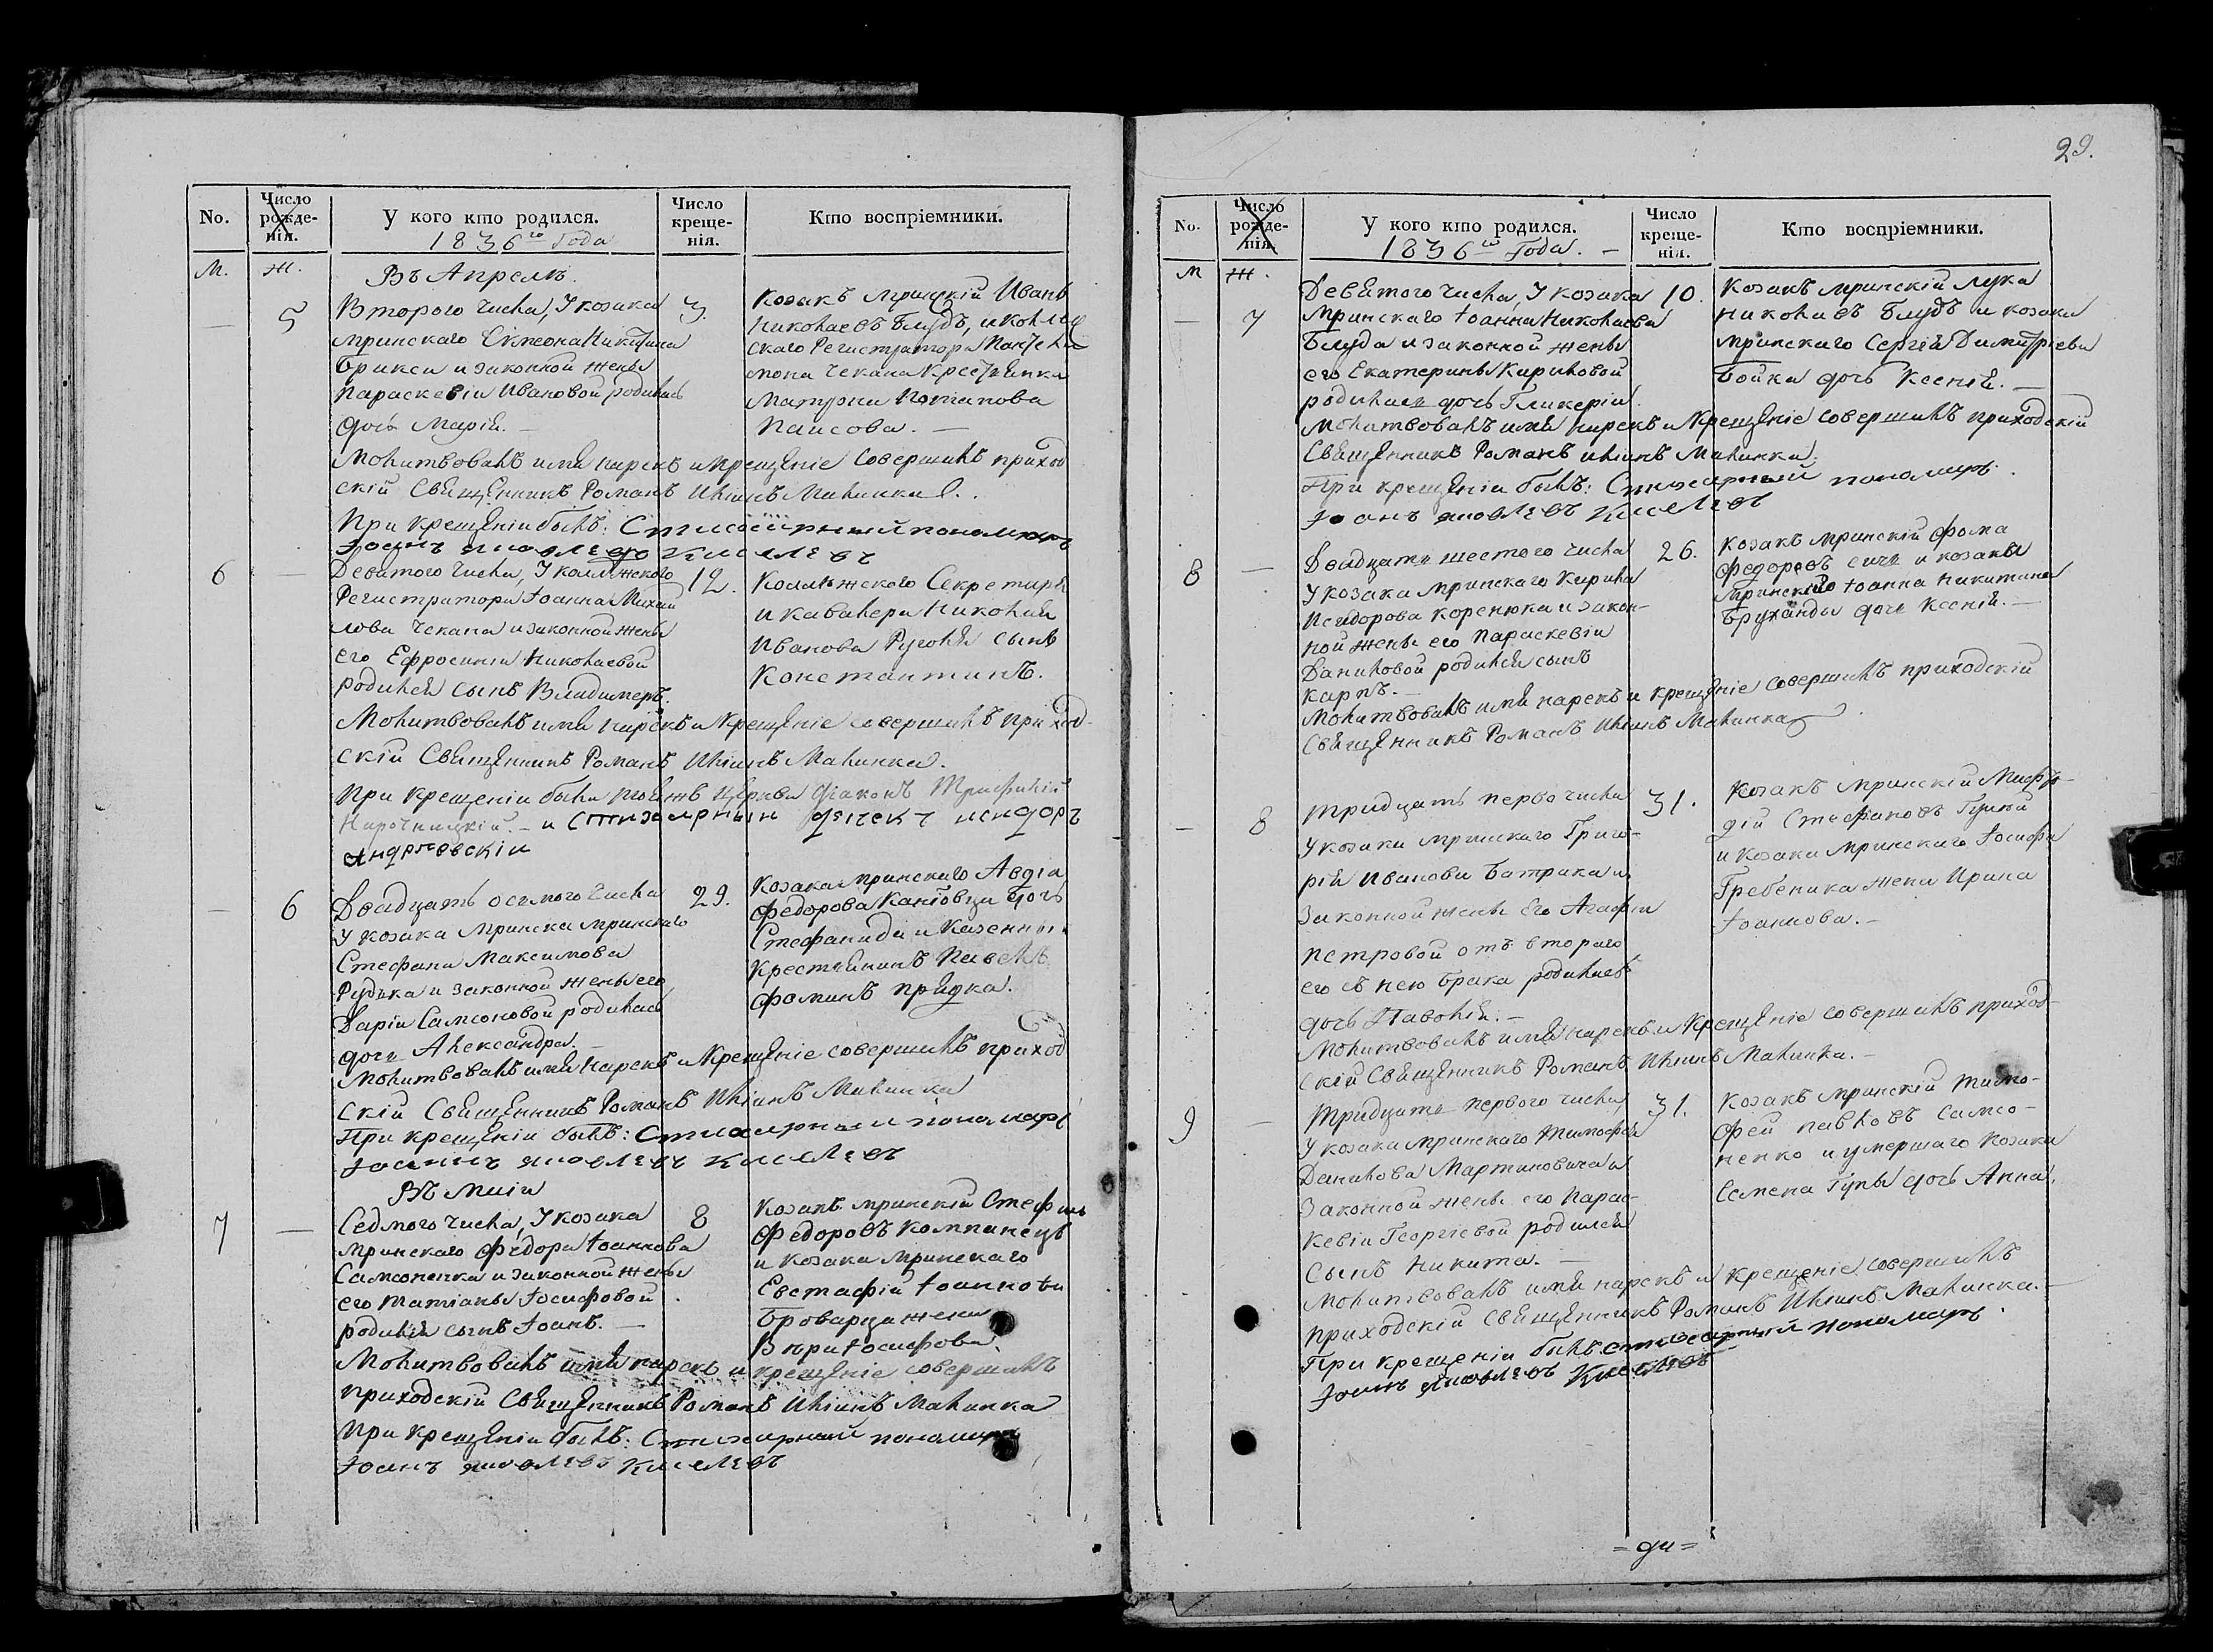 29.
No.
Число рожде-нія.
У кого кто родился.
1836го Года
Число креще-нія.
Кто воспріемники.
М.
Ж.
Въ Апрелѣ.
5
3.
Втораго числа, У козака
мринскаго Симеона Никитина
Брикси и законной жены
Параскевіи Ивановой родилась
дочь Марія. —
Козакъ мринскій Иванъ
Николаевъ Блудъ, и коллеж
скаго Регистратора Пантелей
мона Чекана крестьянка
Матрона Потапова
Паисова. —
Молитвовалъ имя нарекъ и крещеніе совершилъ приход
скій Священникъ Романъ Иліинъ Малинка.
При крещеніи былъ: Стихарный пономарь
Іоанъ яковлевъ Киселевъ
6
12.
Девятого числа, У коллежского
Регистратора Іоанна Михай
лова Чекана и законной жены
его Ефросиніи Николаевой
родился сынъ Владимеръ.
Коллежского Секретаря
и кавалера Николая
Иванова Сынъ
Константинъ.
Молитвовалъ имя нарекъ и крещеніе совершилъ приход-
скій Священникъ Романъ Иліинъ Малинка.
При крещеніи были тоя жъ Церкви Діаконъ Трифилій
и стихарный дячекъ исидоръ
Андріевскій
6
29.
Двадцать осьмого числа
У козака мринска мринскаго
Стефана Максимова
Рудька и законной жены его
Даріи Самсоновой родилась
дочь Александра. —
Козака мринскаго Авдіа
Федорова дочь
Стефанида и Казенный
крестьянинъ Павелъ
Фоминъ Прядка.
Молитвовалъ имя нарекъ и крещеніе совершилъ приход
скій Священникъ Романъ Иліинъ Малинка
При крещеніи былъ: Стихарный пономарь
Іоаннъ яковлевъ Киселевъ
Въ Маіи
7
8
Седмого числа, У козака
мринскаго Федора Іоаннова
Самсоненка и законной жены
его Татіаны Іосифовой
родился сынъ Іоанъ. —
Козакъ мринскій Стефанъ
Федоровъ Компанецъ
и козака мринскаго
Евстафія Іоаннова
Броварца жена
Вѣра Іосифова.
Молитвовалъ имя нарекъ и крещеніе совершилъ
приходскій Священникъ Романъ Иліинъ Малинка
При крещеніи былъ: Стихарный пономарь
Іоанъ яковлевъ Киселевъ
No.
Число рожде-нія.
У кого кто родился.
1836го Года. —
Число креще-нія.
Кто воспріемники.
М
Ж.
7
10.
Девятого числа, У козака
Мринскаго Іоанна Николаева
Блуда и законной жены
его Екатерины Кириловой
родилась дочь Гликерія.
Козакъ мринскій Лука
Николаевъ Блудъ и козака
мринскаго Сергія Димитріева
Бойка дочь Ксенія. —
Молитвовалъ имя нарекъ и крещеніе совершилъ приходскій
Священникъ Романъ Иліинъ Малинка.
При крещеніи былъ: Стихарный пономарь
Іоанъ яковлевъ Киселевъ
8
26.
Двадцать шестого числа
У козака мринскаго Кирила
Исидорова Коренюка и закон-
ной жены его Параскевіи
Даниловой родился сынъ
Карпъ. —
Козакъ мринскій Фома
Федоровъ Сичъ и козака
Мринскаго Іоанна Никитина
дочь Ксенія. —
Молитвовалъ имя нарекъ и крещеніе совершилъ приходскій
Священникъ Романъ Иліинъ Малинка
8
31.
Тридцать перво числа
У козака мринскаго Григо-
рія Иванова Батрака и
законной жены Его Агафіи
Петровой отъ втораго
его съ нею брака родилась
дочь Паволія. —
Козакъ мринскій Мефо-
дій Стефановъ
и козака мринскаго Іосифа
Гребеника жена Ирина
Іоаннова. —
Молитвовалъ имя нарекъ и крещеніе совершилъ приход-
скій Священникъ Романъ Иліинъ Малинка. —
9
31.
Тридцать первого числа
У козака мринскаго Тимофея
Данилова Мартиновича и
законной жены его Парас-
кевіи Георгіевой родился
сынъ Никита. —
Козакъ мринскій Тимо-
фей Павловъ Самсо-
ненко и умершаго козака
Семена Гупы дочь Анна.
Молитвовалъ имя нарекъ и крещеніе совершилъ
приходскій Священникъ Романъ Иліинъ Малинка. —
При крещеніи былъ стихарный пономарь
Іоанъ яковлевъ Киселевъ